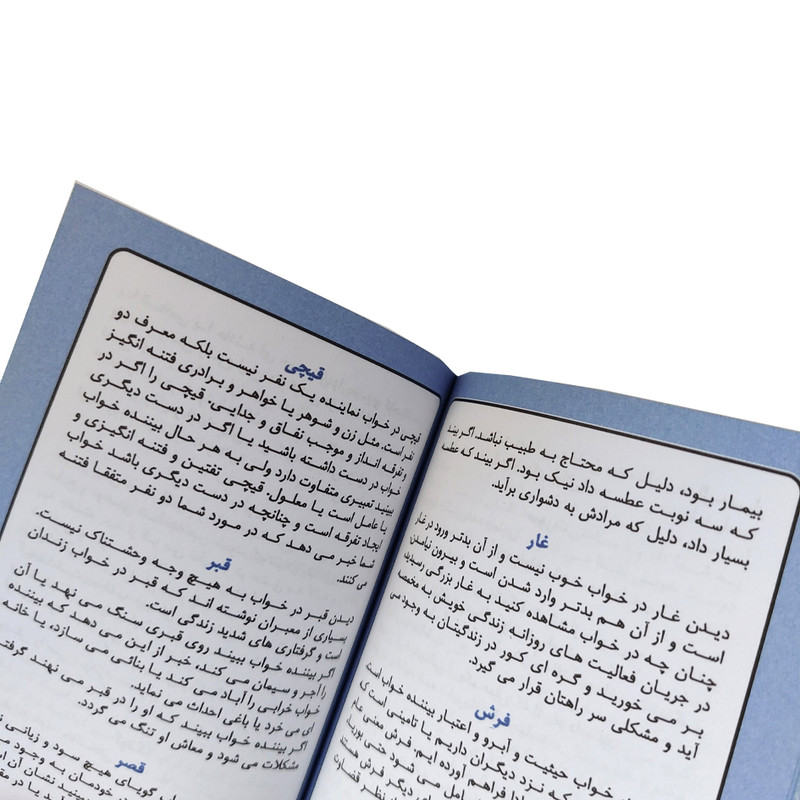 بیمار بود، دلیل که محتاج به طبیب نباشد. اگر بیند
که سه نوبت عطسه داد نیک بود. اگر بیند که عطسه
بسیار داد، دلیل که مرادش به دشواری برآید.
غار
دیدن غار در خواب خوب نیست و از آن بدتر ورود در غار
است و از آن هم بدتر وارد شدن است و بیرون نیامدن.
چنان چه در خواب مشاهده کنید به غار بزرگی رسیدید
در جریان فعالیت های روزانه زندگی خویش به مخمصه
بر می خورید و گره ای کور در زندگیتان به وجود می
آید و مشکلی سر راهتان قرار می گیرد.
فرش
خواب حیثیت و آبرو و اعتبار بیننده خواب است.
که نزد دیگران داریم یا تامینی است که
فراهم آورده ایم. فرش معنی عام
شامل می شود حتی بوریا.
های دیگر فرش هستند
نظر قضاوت
قیچی
قیچی در خواب نماینده یک نفر نیست بلکه معرف دو
نفر است. مثل زن و شوهر یا خواهر و برادری فتنه انگیز
و تفرقه انداز و موجب نفاق و جدایی. قیچی را اگر در
خواب در دست داشته باشید یا اگر در دست دیگری
ببینید تعبیری متفاوت دارد ولی به هر حال بیننده خواب
یا عامل است یا معلول. قیچی تفتین و فتنه انگیزی و
ایجاد تفرقه است و چنانچه در دست دیگری باشد خواب
شما خبر می دهد که در مورد شما دو نفر متفقا فتنه
می کنند.
قبر
دیدن قبر در خواب به هیچ وجه وحشتناک نیست.
بسیاری از معبران نوشته اند که قبر در خواب زندان
است و گرفتاری های شدید زندگی است.
اگر بیننده خواب ببیند روی قبری سنگ می نهد یا آن
را آجر و سیمان می کند، خبر از این می دهد که بیننده
خواب خرابی را آباد می کند یا بنائی می سازد، یا خانه
ای می خرد یا باغی احداث می نماید.
اگر بیننده خواب ببیند که او را در قبر می نهند گرفتار
مشکلات می شود و معاش او تنگ می گردد.
قصر
خواب گویای هیچ سود و زیانی
خودمان به وجود می
ببینید نشان آن